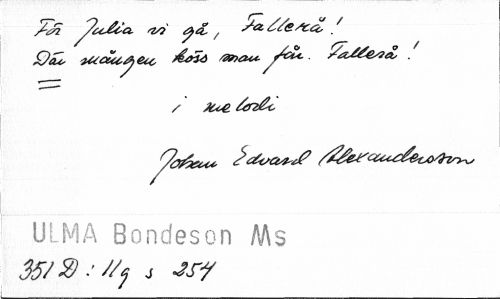 För Julia vi gå, Fallerå!
Där mången köss man får. Fallerå!
1 melodi
Johan Edvard Alexandersson
ULMA Bondeson Ms
351 D : 11q s 254